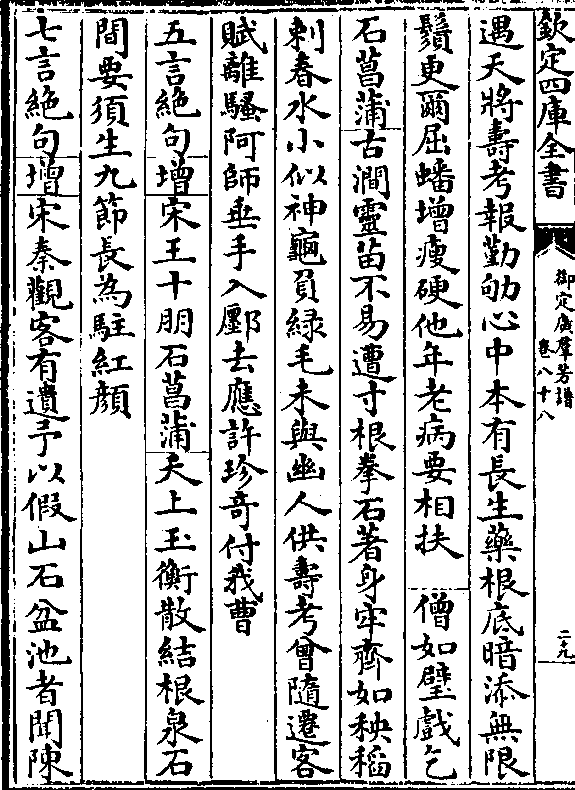 欽定四庫全書
御定廣羣芳譜
卷八十八
二九
遇天將壽考報勤劬心中本有長生藥根底暗添無限
鬚更爾屈蟠增瘦硬他年老病要相扶 僧如璧戲乞
石菖蒲古澗靈苗不易遭寸根拳石著身牢齊如秧稻
剌春水小似神龜負緑毛未與幽人供壽考曾隨遷客
賦離騷阿師垂手入鄽去應許珍奇付我曹
五言絶句增宋王十朋石菖蒲天上玉衡散結根泉石
間要須生九節長為駐紅顔
七言絶句增宋秦觀客有遺予以假山石盆池者聞陳